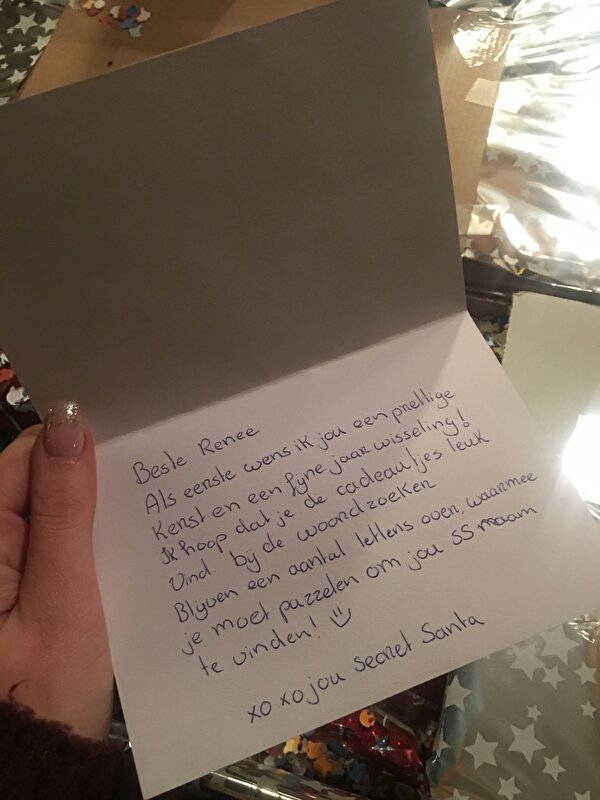 Beste Renee
Als eerste wens ik jou een prettige
Kerst en een fijne jaar wisseling!
Ik hoop dat je de cadeautjes leuk
Vind bij de woordzoeken
Blijven een aantal letters over, waarmee
je moet puzzelen om jou SS maam
te vinden!
xo xo jou Secret Santa